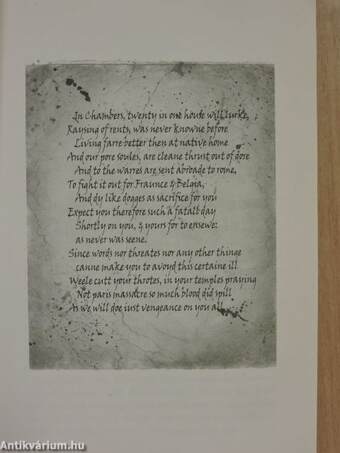 In Chambers, twenty in one house will lurke,
Raysing of rents, was never knowne before
Living farre better then at native home
And our pore soules, are cleane thrust out of dore
And to the warres are sent abroade to rome,
To fight it out for Fraunce & Belgia,
And dy like dogges as sacrifice for you
Expect you therefore such a fatall day
Shortly on you, & yours for to ensewe:
as never was seene.
Since words nor threates nor any other thinge
canne make you to avoyd this certaine ill
Weele cutt your throtes, in your temples praying
Not paris massacre so much blood did spill
As we will doe just vengeance on you all
Antikvárium.hu